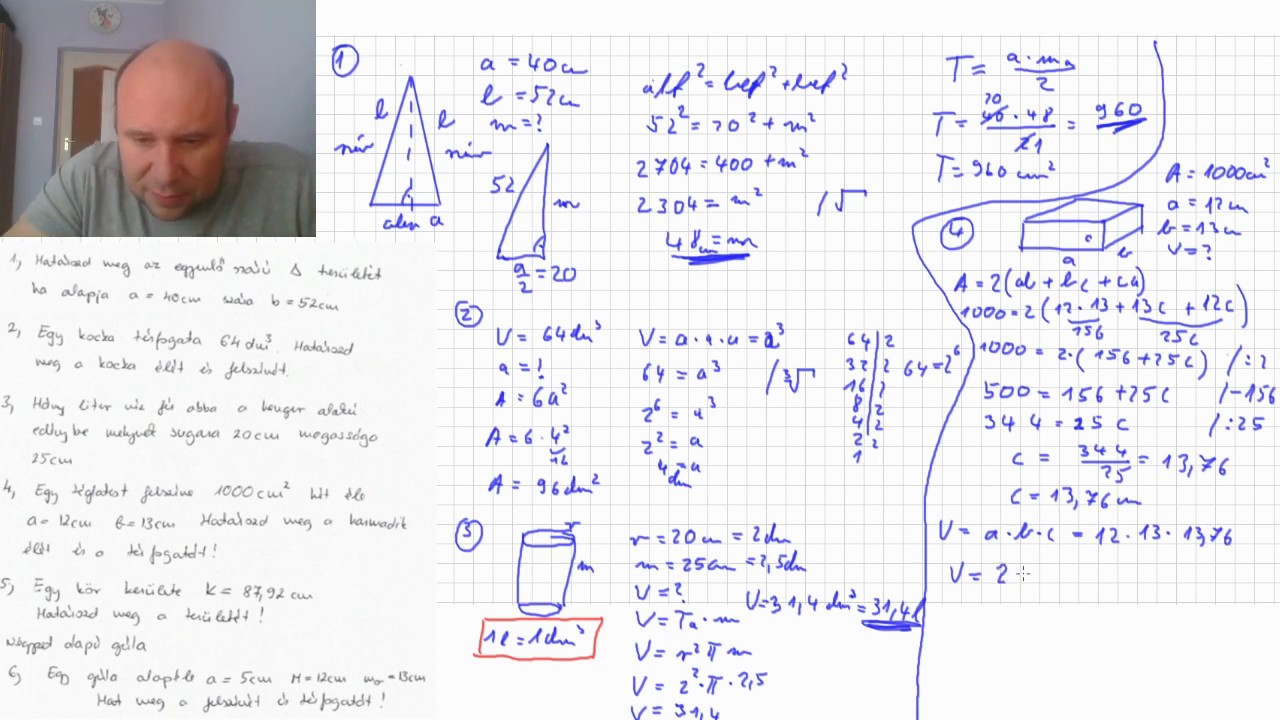 1, Határozd meg az egyenlő szárú Δ területét
ha alapja a = 40cm szára b = 52cm
2, Egy kocka térfogata 64dm³. Határozd
meg a kocka élét és felszínét.
3, Hány liter víz fér abba a henger alakú
edénybe melynek sugara 20cm magassága
25cm
4, Egy téglatest felszíne 1000cm² két éle
a=12cm b=13cm Határozd meg a harmadik
élét és a térfogatát!
5, Egy kör kerülete K = 87,92 cm
Határozd meg a területét!
négyzet alapú gúla
6, Egy gúla alapéle a = 5cm H = 12cm m₀ = 13cm
Hat meg a felszínét és térfogatát!
1
b
b
szár
szár
alap a
a = 40cm
b = 52cm
m = ?
52
m
a/2 = 20
átf² = bef² + bef²
52² = 20² + m²
2704 = 400 + m²
2304 = m² /√
48cm = m
T = a·mₐ/2
T = 40·48/2 = 960
20
1
T = 960 cm²
2
V = 64dm³
a = ?
A = 6a²
A = 6·4²
16
A = 96dm²
V = a·a·a = a³
64 = a³ /∛
2⁶ = a³
2² = a
4 = a
dm
64|2
32|2
16|2
8|2
4|2
2 2
1
64 = 2⁶
3
r
m
1l = 1dm³
r = 20cm = 2dm
m = 25cm = 2,5dm
V = ?
V = Tₐ·m
V = r²π m
V = 2²·π·2,5
V = 31,4
V = 31,4 dm³ = 31,4l
4
a
b
c
A = 1000cm²
a = 12cm
b = 13cm
V = ?
A = 2(ab + bc + ca)
1000 = 2(12·13 + 13c + 12c)
156
25c
1000 = 2·(156 + 25c) /:2
500 = 156 + 25c /-156
344 = 25c /:25
c = 344/25 = 13,76
c = 13,76cm
V = a·b·c = 12·13·13,76
V = 2